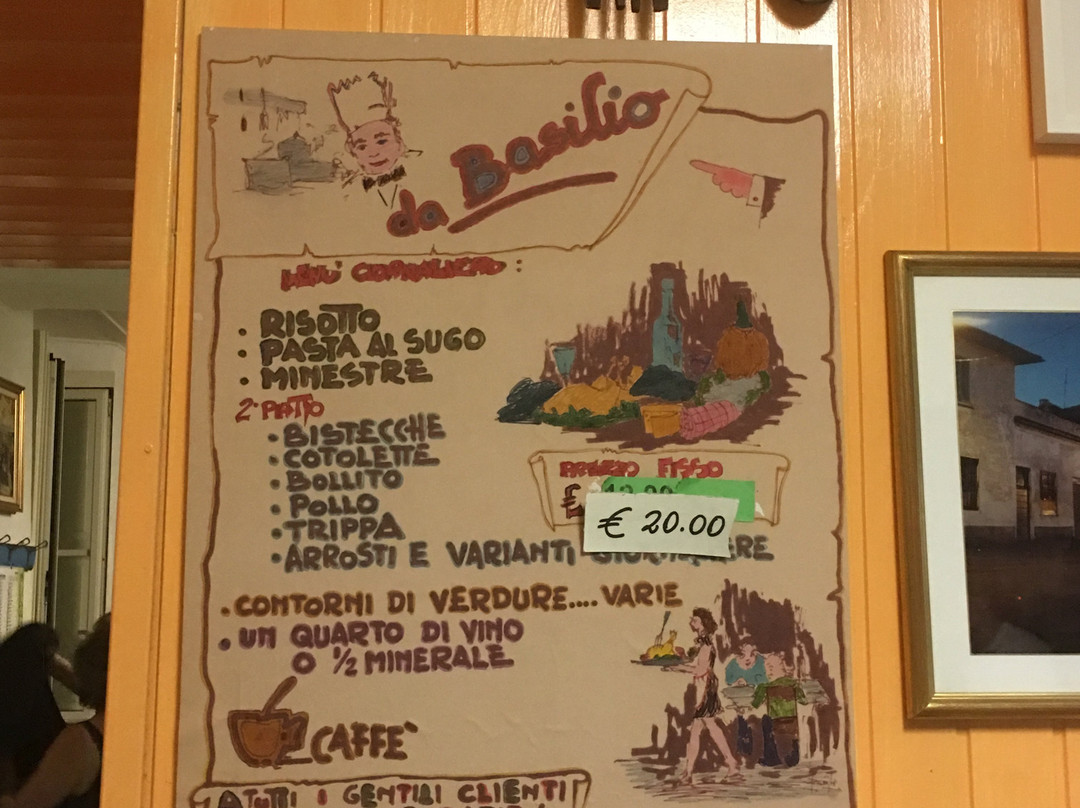 da Basilio
MENU' GIORNALIERO :
• RISOTTO
• PASTA AL SUGO
• MINESTRE
2° PIATTO
• BISTECCHE
• COTOLETTE
• BOLLITO
• POLLO
• TRIPPA
PREZZO FISSO
€
€ 20.00
• ARROSTI E VARIANTI
• CONTORNI DI VERDURE.... VARIE
• UN QUARTO DI VINO
O ½ MINERALE
CAFFE'
A TUTTI I GENTILI CLIENTI